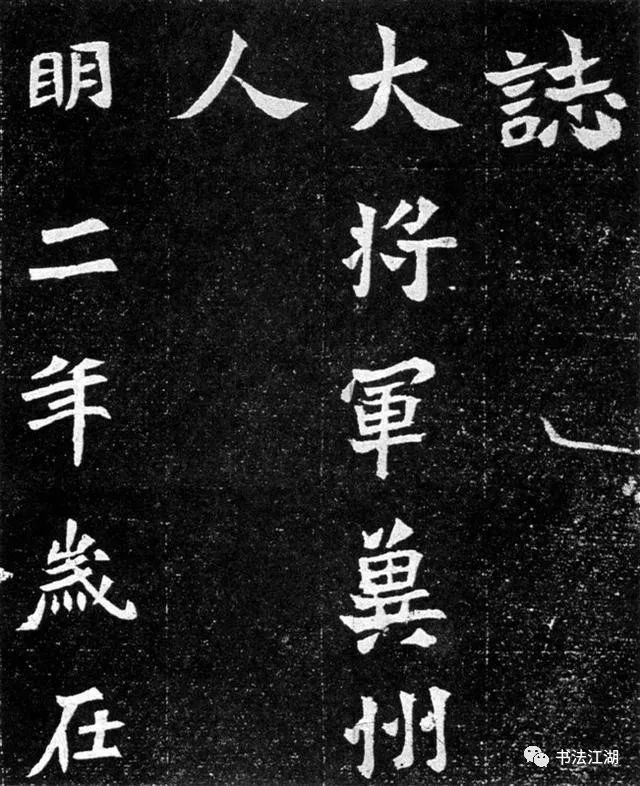 誌
大将軍冀州
人
明二年歲在
书法江湖